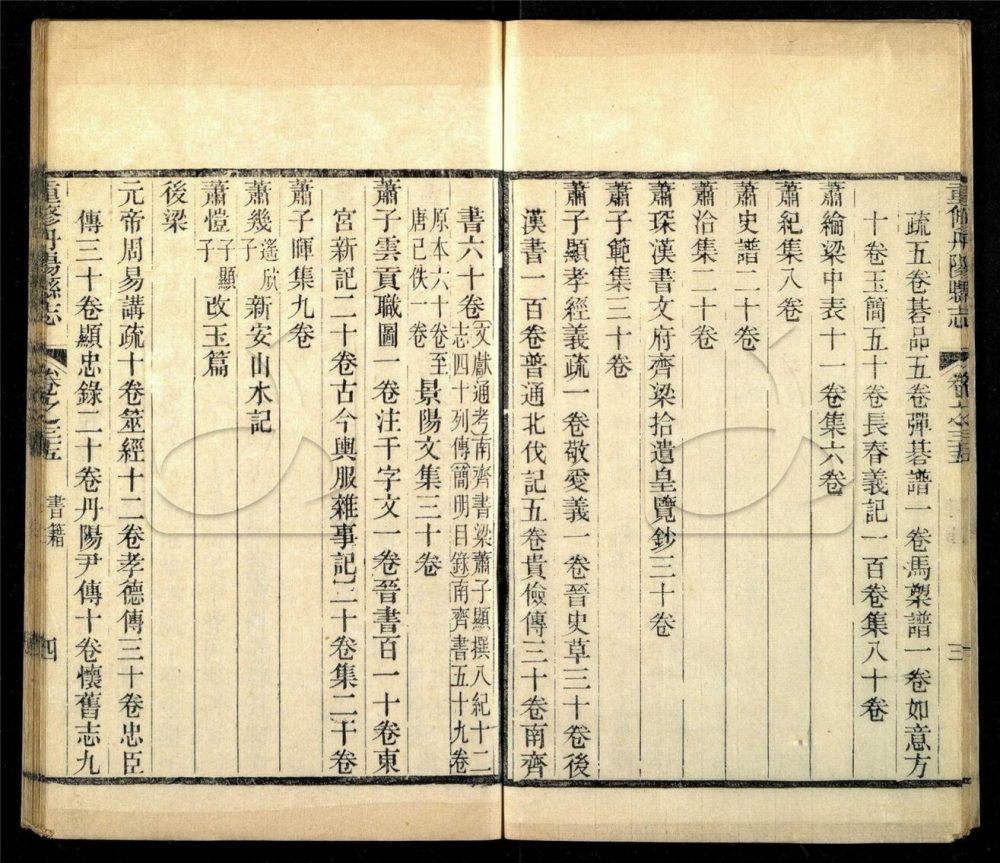 重修丹陽縣志
疏五卷碁品五卷彈碁譜一卷馬槊譜一卷如意方
十卷玉簡五十卷長春義記一百卷集八十卷
蕭綸梁中表十一卷集六卷
蕭紀集八卷
蕭史譜二十卷
蕭洽集二十卷
蕭琛漢書文府齊梁拾遺皇覽鈔三十卷
蕭子範集三十卷
蕭子顯孝經義疏一卷敬愛義一卷晉史草三十卷後
漢書一百卷普通北伐記五卷貴儉傳三十卷南齊
書六十卷文獻通考南齊書梁蕭子顯撰八紀十二志四十列傳簡明目錄南齊書五十九卷原本六十卷至唐已佚一卷景陽文集三十卷
蕭子雲貢職圖一卷注千字文一卷晉書百一十卷東
宮新記二十卷古今輿服雜事記二十卷集二十卷
蕭子暉集九卷
蕭幾遙欣子新安山水記
蕭愷子顯子改玉篇
後梁
元帝周易講疏十卷筮經十二卷孝德傳三十卷忠臣
傳三十卷顯忠錄二十卷丹陽尹傳十卷懷舊志九
重修丹陽縣志
卷之三五
書籍
四